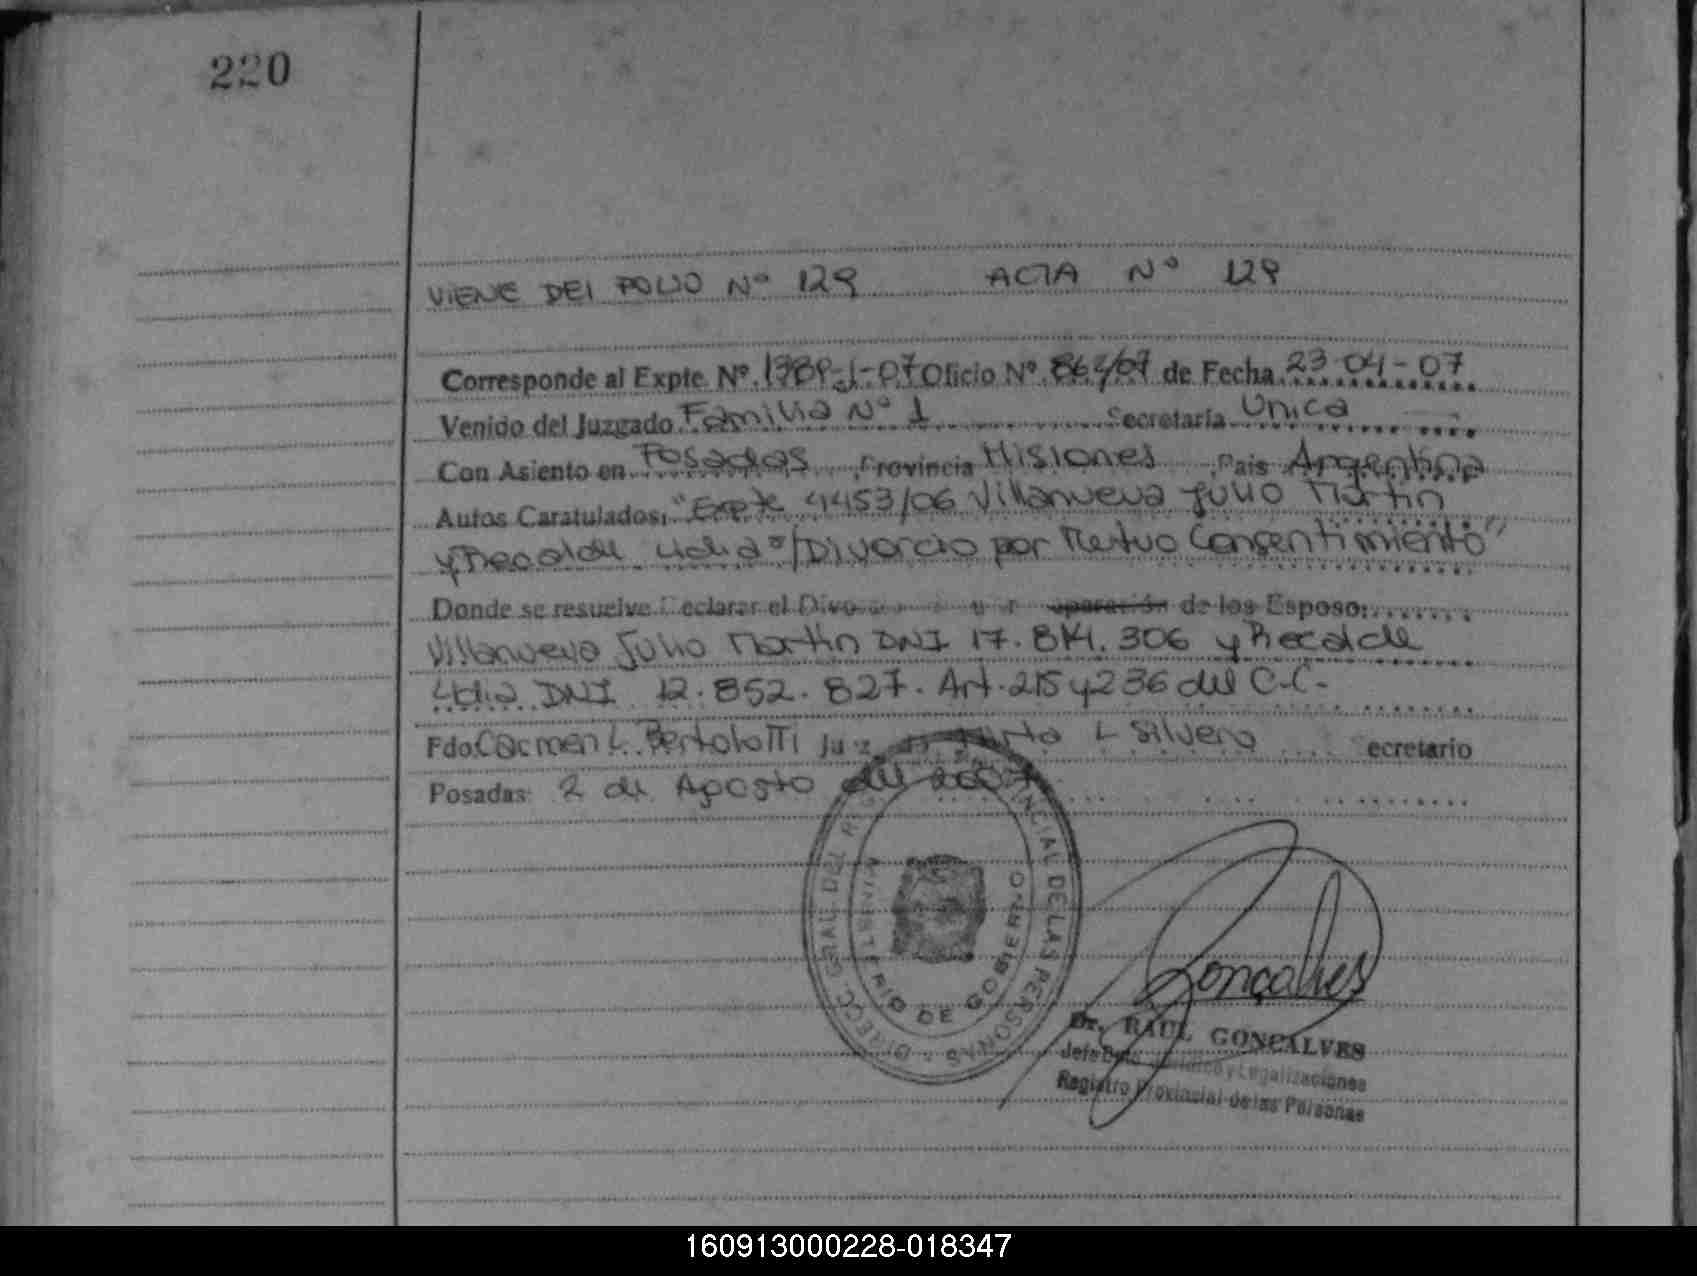 220
VIENE DEL FOLIO Nº 129 ACTA Nº 129
Corresponde al Expte. Nº. Oficio Nº. 862/07 de Fecha 23-04-07
Venido del Juzgado Familia Nº 1 Secretaría Unica
Con Asiento en Posadas, Provincia Misiones, Pais Argentina
Autos Caratulados: "Expte 4453/06 Villanueva Julio Martin
y Recalde Lidia s/Divorcio por Mutuo Consentimiento"
Donde se resuelve Declarar el de los Esposos:
Villanueva Julio Martin DNI 17.814.306 y Recalde
Lidia DNI 12.852.827. Art. 215 y 236 del C.C.
Fdo. Carmen L. Bertolotti Juez L Silvero Secretario
Posadas: 2 de Agosto del 2007
DIRECC. GRAL. DEL REG. PROVINCIAL DE LAS PERSONAS
MINISTERIO DE GOBIERNO
Gonçalves
Dr. RAUL GONÇALVES
Jefe Dpto. y Legalizaciones
Registro Provincial de las Personas
160913000228-018347